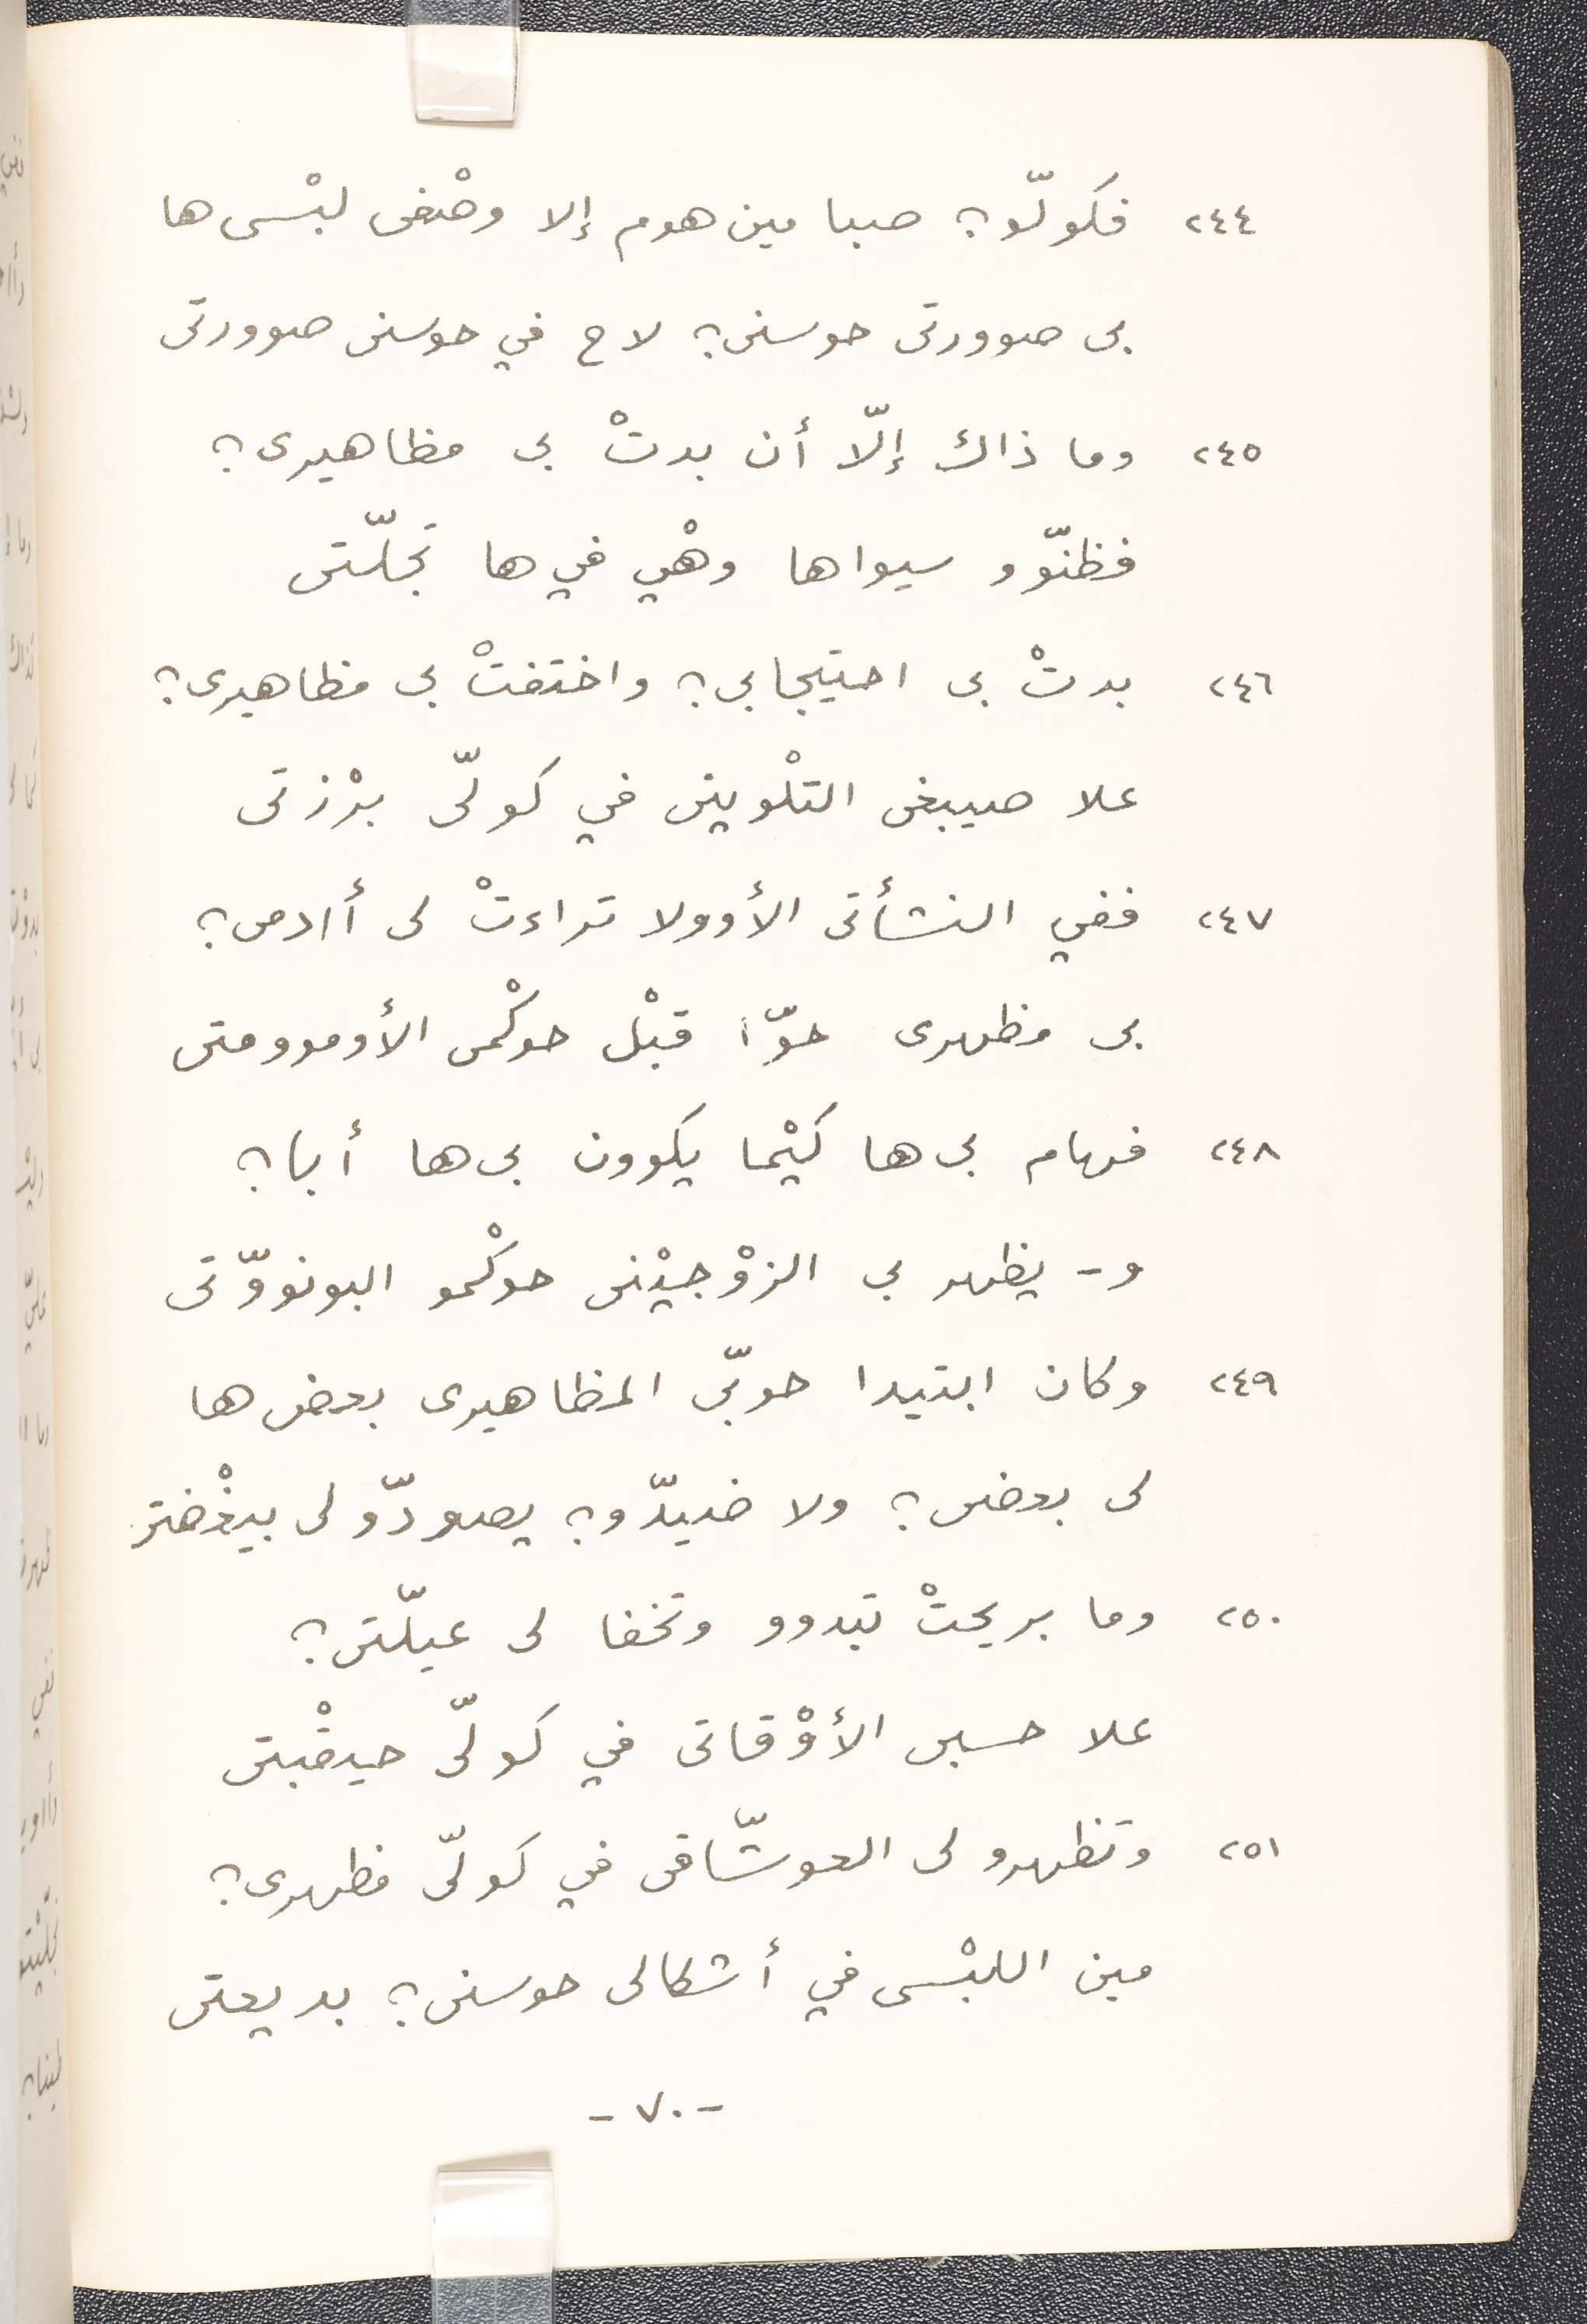 ٢٤٤ فكولّو؟ صبا مين هوم إلا وصْفى لبْسى ها
بى صوورتى حوسنى؟ لاح في حوسنى صوورتى
٢٤٥ وما ذاك إلّا أن بدتْ بى مظاهيرى؟
فظنّوو سيواها وهْي في ها تجلّتى
٢٤٦ بدتْ بى احتيجابى؟ واختفتْ بى مظاهيرى؟
علا صيبغى التلْوينى في كولّى برْزتى
٢٤٧ ففي النشأتى الأوولا تراءتْ لى أادمى؟
بى مظهرى حوّا قبْل حوكْمى الأوموومتى
٢٤٨ فهام بى ها كيْما يكوون بى ها أبا؟
و- يظهر بى الزوْجيْنى حوكْمو البونووّتى
٢٤٩ وكان ابتيدا حوبّى المظاهيرى بعض ها
لى بعضى؟ ولا ضيدّو؟ يصودّو لى بيغْضتى
٢٥٠ وما بريحتْ تبدوو وتخفا لى عيلّتى؟
علا حسبى الأوْقاتى في كولّى حيقْبتى
٢٥١ وتظهرو لى العوشّاقى في كولّى مظهرى؟
مين اللبْسى في أشكالى حوسنى؟ بديعتى
-٧٠-